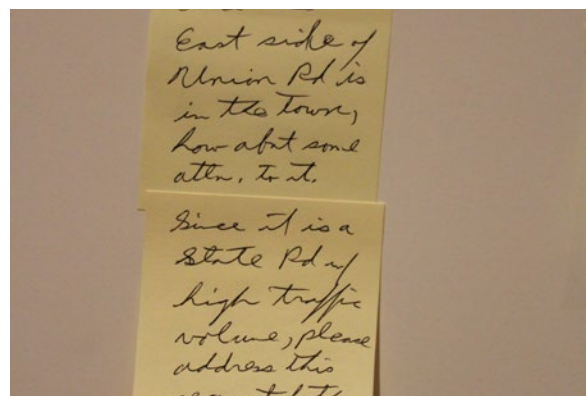 East side of
Union Rd is
in the Town,
how abut some
attn. to it.
Since it is a
State Rd w/
high traffic
volume, please
address this